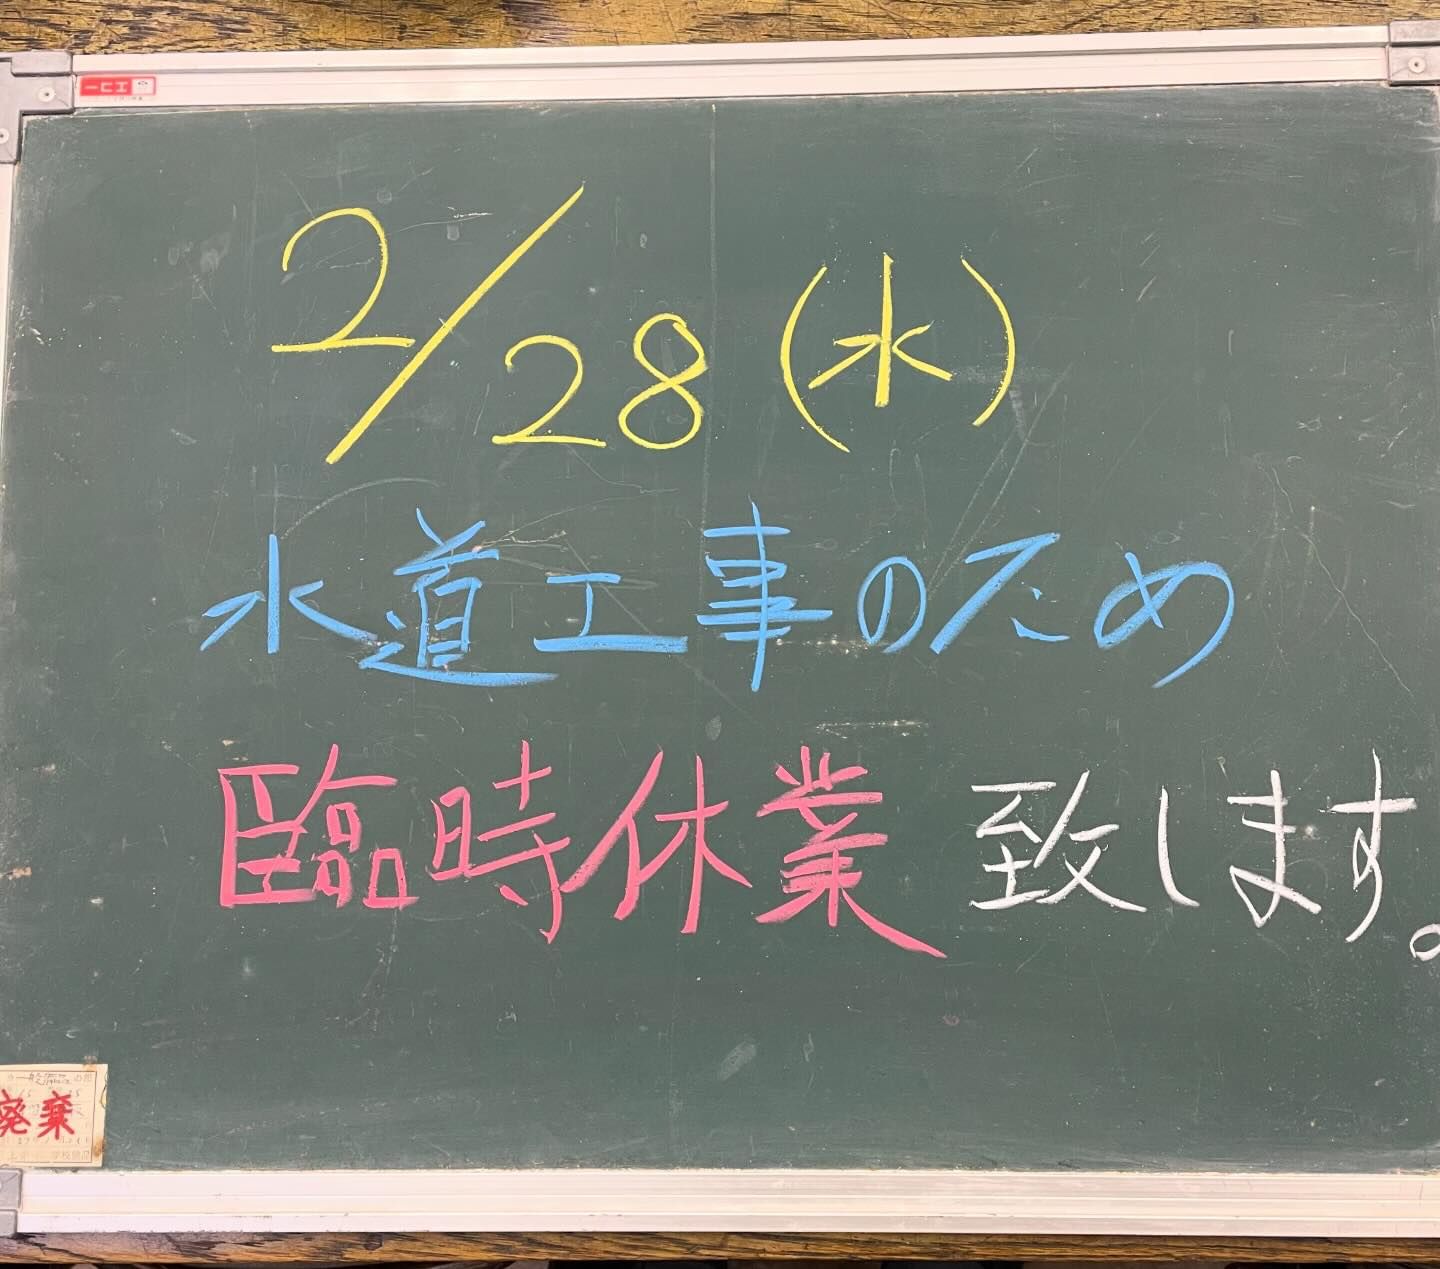 2/28(水)
水道工事のため
臨時休業致します。
廃棄